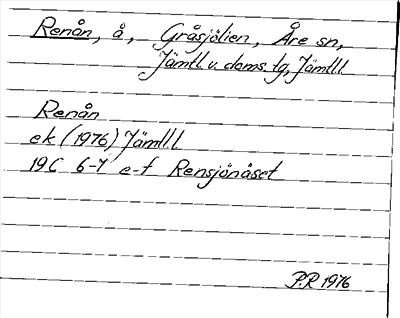 Renån, å, Gråsjölien, Åre sn,
Jämtl. v. doms. tg, Jämtl.l.
Renån
ek (1976) Jämtl.l
19C 6-7 e-f Rensjönåset
P.R 1976